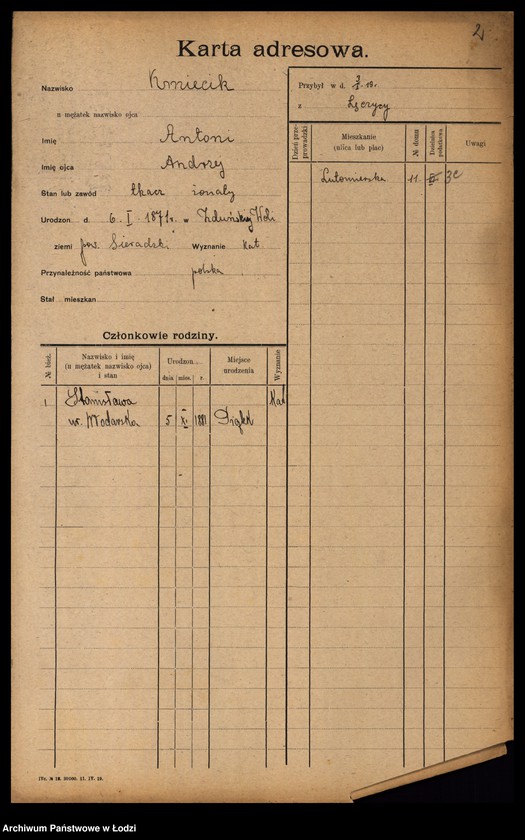 2
Karta adresowa.
Nazwisko Kmiecik
u mężatek nazwisko ojca
Imię Antoni
Imię ojca Andrzej
Stan lub zawód tkacz żonaty
Urodzon d. 6. I. 1871r. w Zduńskiej Woli
ziemi pow. Sieradzki Wyznanie kat.
Przynależność państwowa polska
Stał mieszkan
Przybył w d. 3/I 19 r.
z Łęczycy
Dzień przeprowadzki
Mieszkanie
(ulica lub plac)
№ domu
Dzielnica podatkowa
Uwagi
Lutomierska 11.
Członkowie rodziny.
№ bież.
Nazwisko i imię
(u mężatek nazwisko ojca)
i stan
Urodzon
dnia mies. r.
Miejsce
urodzenia
Wyznanie
1 Stanisława Kat
ur. Modarska 5 XI 1881 Piątek
IVa. № 18. 50000. II. IV. 18.
Archiwum Państwowe w Łodzi